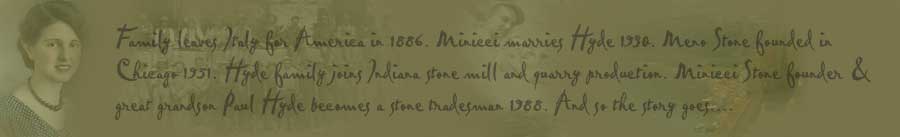 Family leaves Italy for America in 1886. Minicci marries Hyde 1930. Meno Stone founded in
Chicago 1951. Hyde family joins Indiana stone mill and quarry production. Minicci Stone founder &
great grandson Paul Hyde becomes a stone tradesman 1988. And so the story goes....